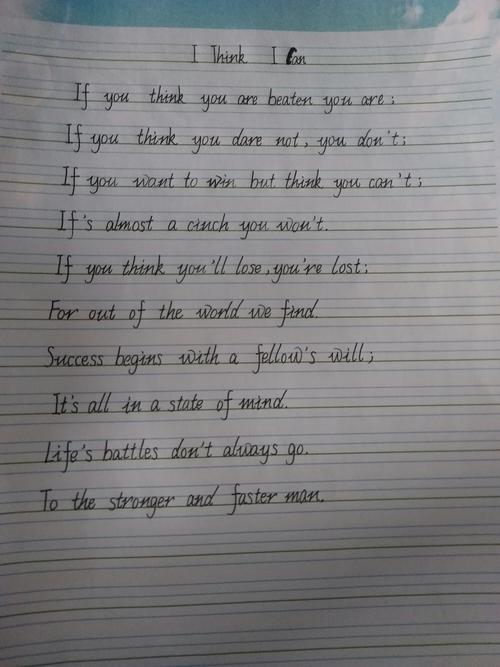 I Think I Can
If you think you are beaten you are;
If you think you dare not, you don't;
If you want to win but think you can't;
If's almost a cinch you won't.
If you think you'll lose, you're lost;
For out of the world we find.
Success begins with a fellow's will;
It's all in a state of mind.
Life's battles don't always go.
To the stronger and faster man.